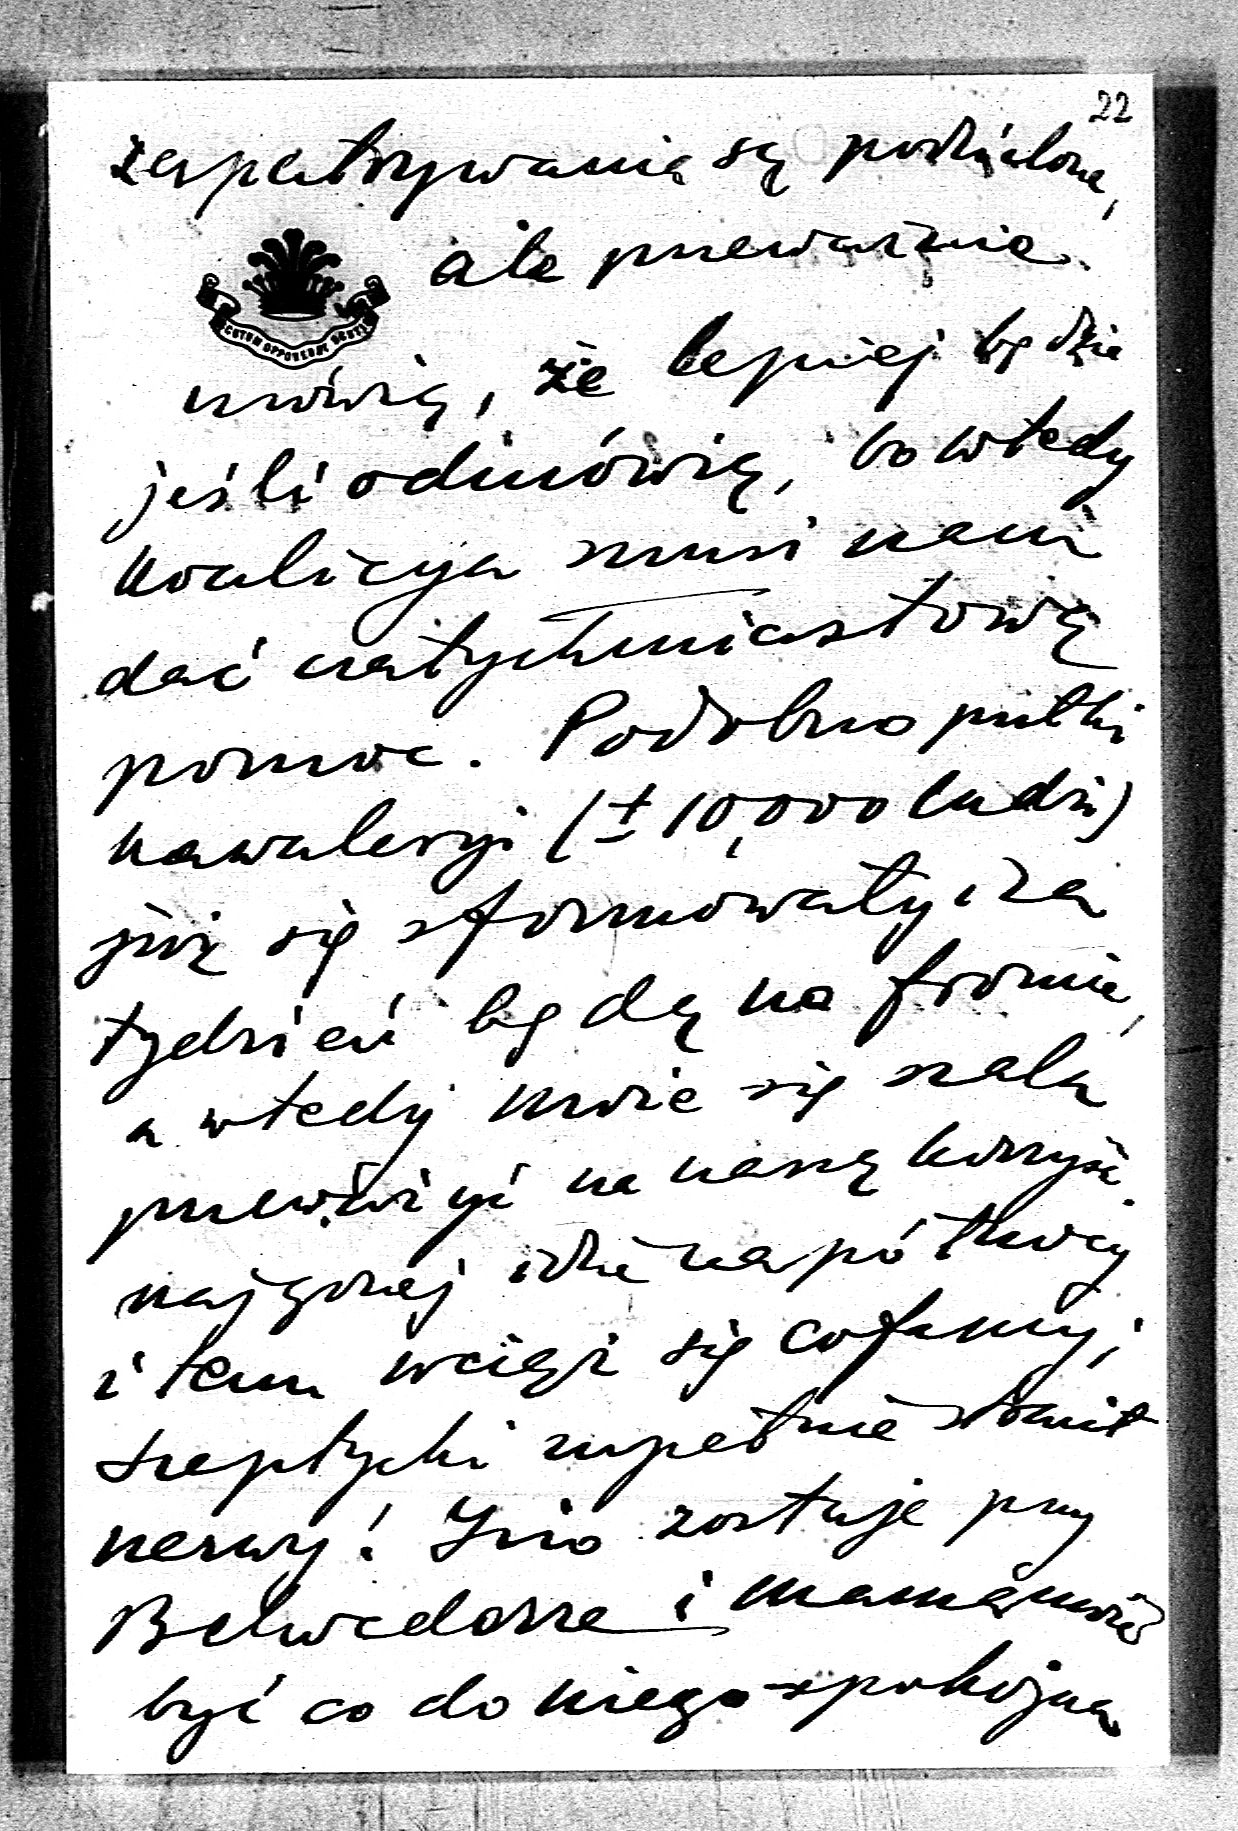 22
zapatrywania są podzielone,
ale przeważnie
mówią, że lepiej będzie
jeśli odmówią, bo wtedy
koalicya musi nam
dać natychmiastową
pomoc. Podobno pułki
kawaleryi (± 10,000 ludzi)
już się sformowały i za
tydzień będą na froncie,
a wtedy może się szala
przeważyć na naszą korzyść.
najgorzej idzie na północy
i tam wciąż się cofamy;
Szeptycki zupełnie stracił
nerwy! Ino zostaje przy
Belwederze i mama może
być co do niego spokojna